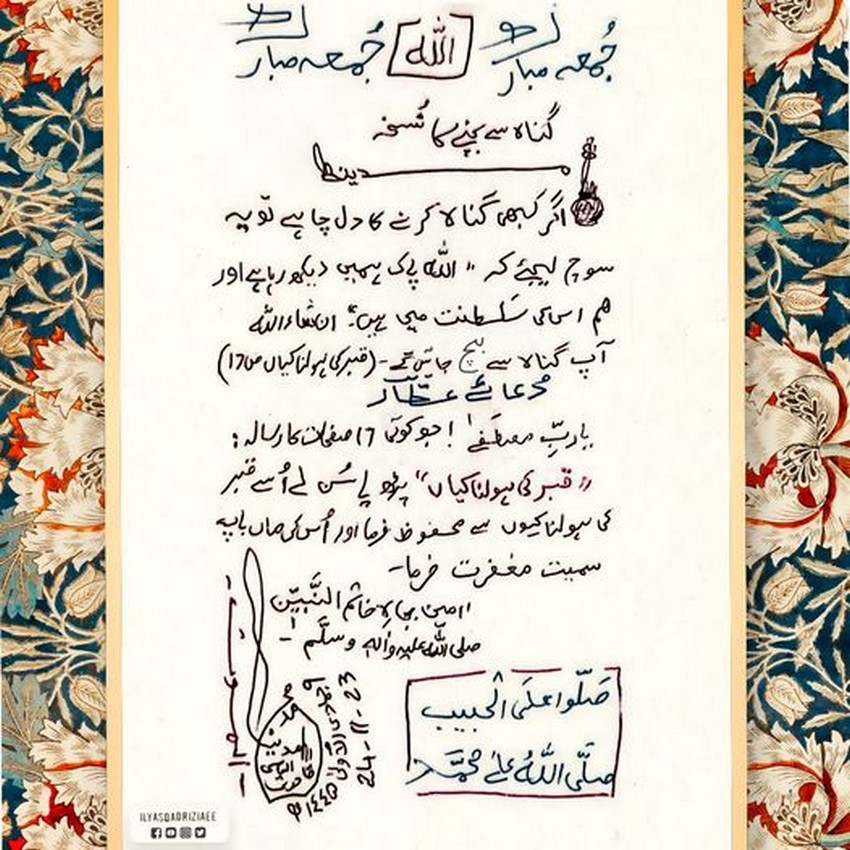 جُمعہ مبارک اللہ جُمعہ مبارک
گناہ سے بچنے کا نُسخہ
اگر کبھی گناہ کرنے کا دل چاہے تو یہ
سوچ لیجئے کہ "اللہ پاک ہمیں دیکھ رہا ہے اور
ہم اس کی سَلطنت میں ہیں"۔ ان شاءاللہ
آپ گناہ سے بچ جائیں گے۔ (قبر کی ہولناکیاں ص17)
دُعائے عطّار
یاربِّ مصطَفٰے! جو کوئی 17 صفحات کا رسالہ:
"قبر کی ہولناکیاں" پڑھ یا سُن لے اُسے قبر
کی ہولناکیوں سے محفوظ فرما اور اُس کی ماں باپ
سمیت مغفرت فرما۔
امین بجاہِ خاتمِ النَّبیّٖن
صلی اللہ علیہ واٰلہٖ وسلَّم ۔
صَلُّوا عَلَی الْحَبِیب
صلَّی اللہُ علٰی محمَّد
۱۴۴۵
24-11-23
ILYASQADRIZIAEE